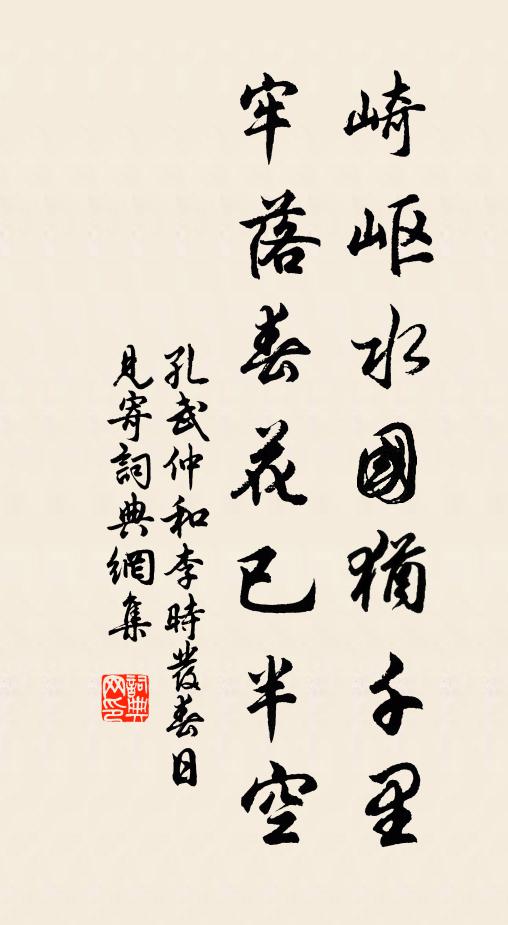 崎岖水國猶千里
牢落春花已半空
孔武仲和李時發春日
見寄詞典網集
詞典網印